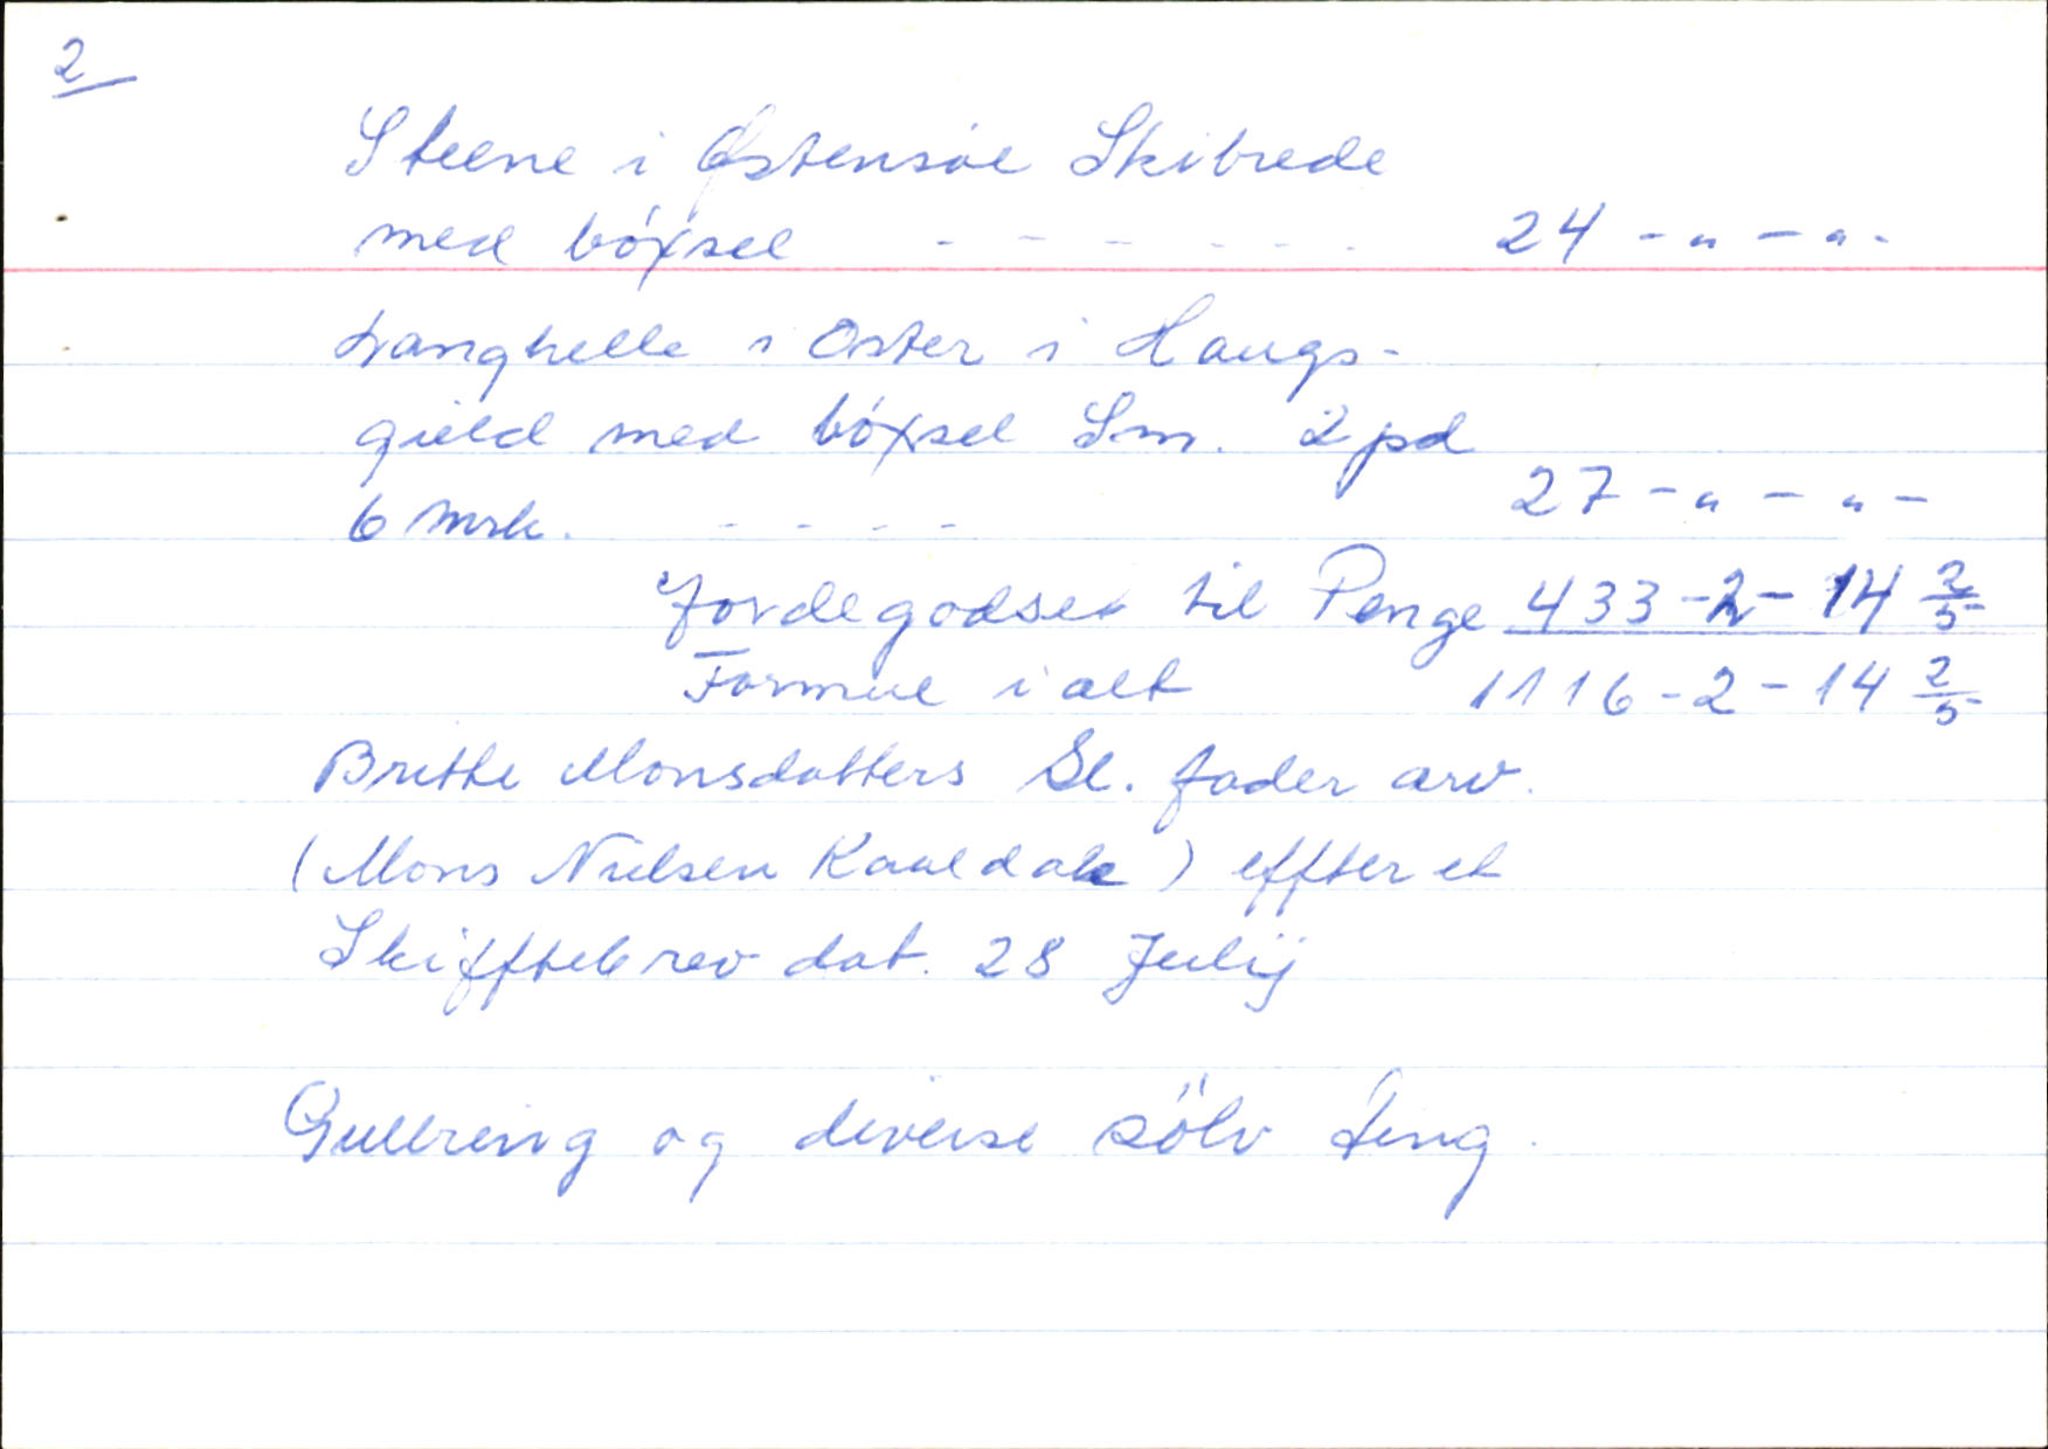 2
Steene i Østensøe Skibrede
med bóxsel - - - - - - 24 - " - " -
Langhelle i Oster i Haugs-
gield med bóxsel Sm. 2 pd
6 mrk. - - - - 27 - " - " -
Jordegodset til Penge 433 - 2 - 14 2/5
Formue i alt 1116 - 2 - 14 2/5
Britthe Monsdatters Sl. fader arv.
(Mons Nielsen Kaaldale) effter et
Skifftebrev dat. 28 Julij
Gullring og diverse sölv ting.